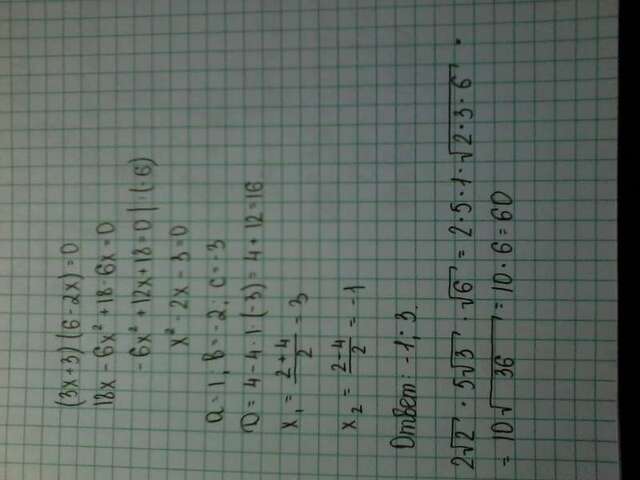 (3x+3)(6-2x)=0
18x-6x²+18-6x=0
-6x²+12x+18=0 |:(-6)
x²-2x-3=0
a=1; b=-2; c=-3
D=4-4·1·(-3)=4+12=16
x₁=(2+4)/2=3
x₂=(2-4)/2=-1
Ответ: -1; 3.
2√2·5√3·√6=2·5·1·√(2·3·6)=
=10√36=10·6=60